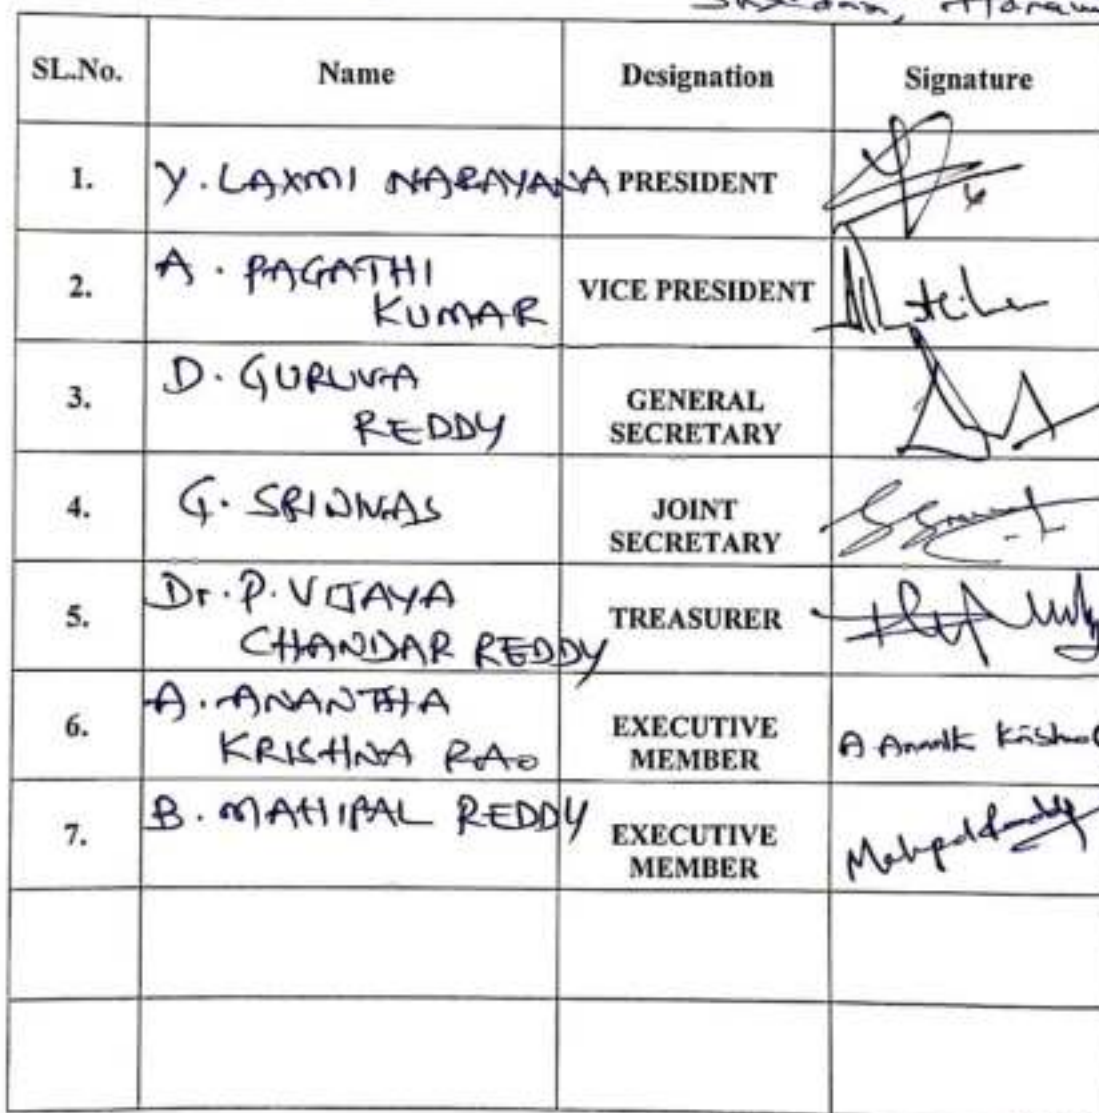 SL.No. Name Designation Signature
1. Y. LAXMI NARAYANA PRESIDENT
2. A. PAGATHI
KUMAR VICE PRESIDENT
3. D. GURUVA
REDDY GENERAL
SECRETARY
4. G. SRINIVAS JOINT
SECRETARY
5. Dr. P. VIJAYA
CHANDAR REDDY TREASURER
6. A. ANANTHA
KRISHNA RAO EXECUTIVE
MEMBER
7. B. MAHIPAL REDDY EXECUTIVE
MEMBER